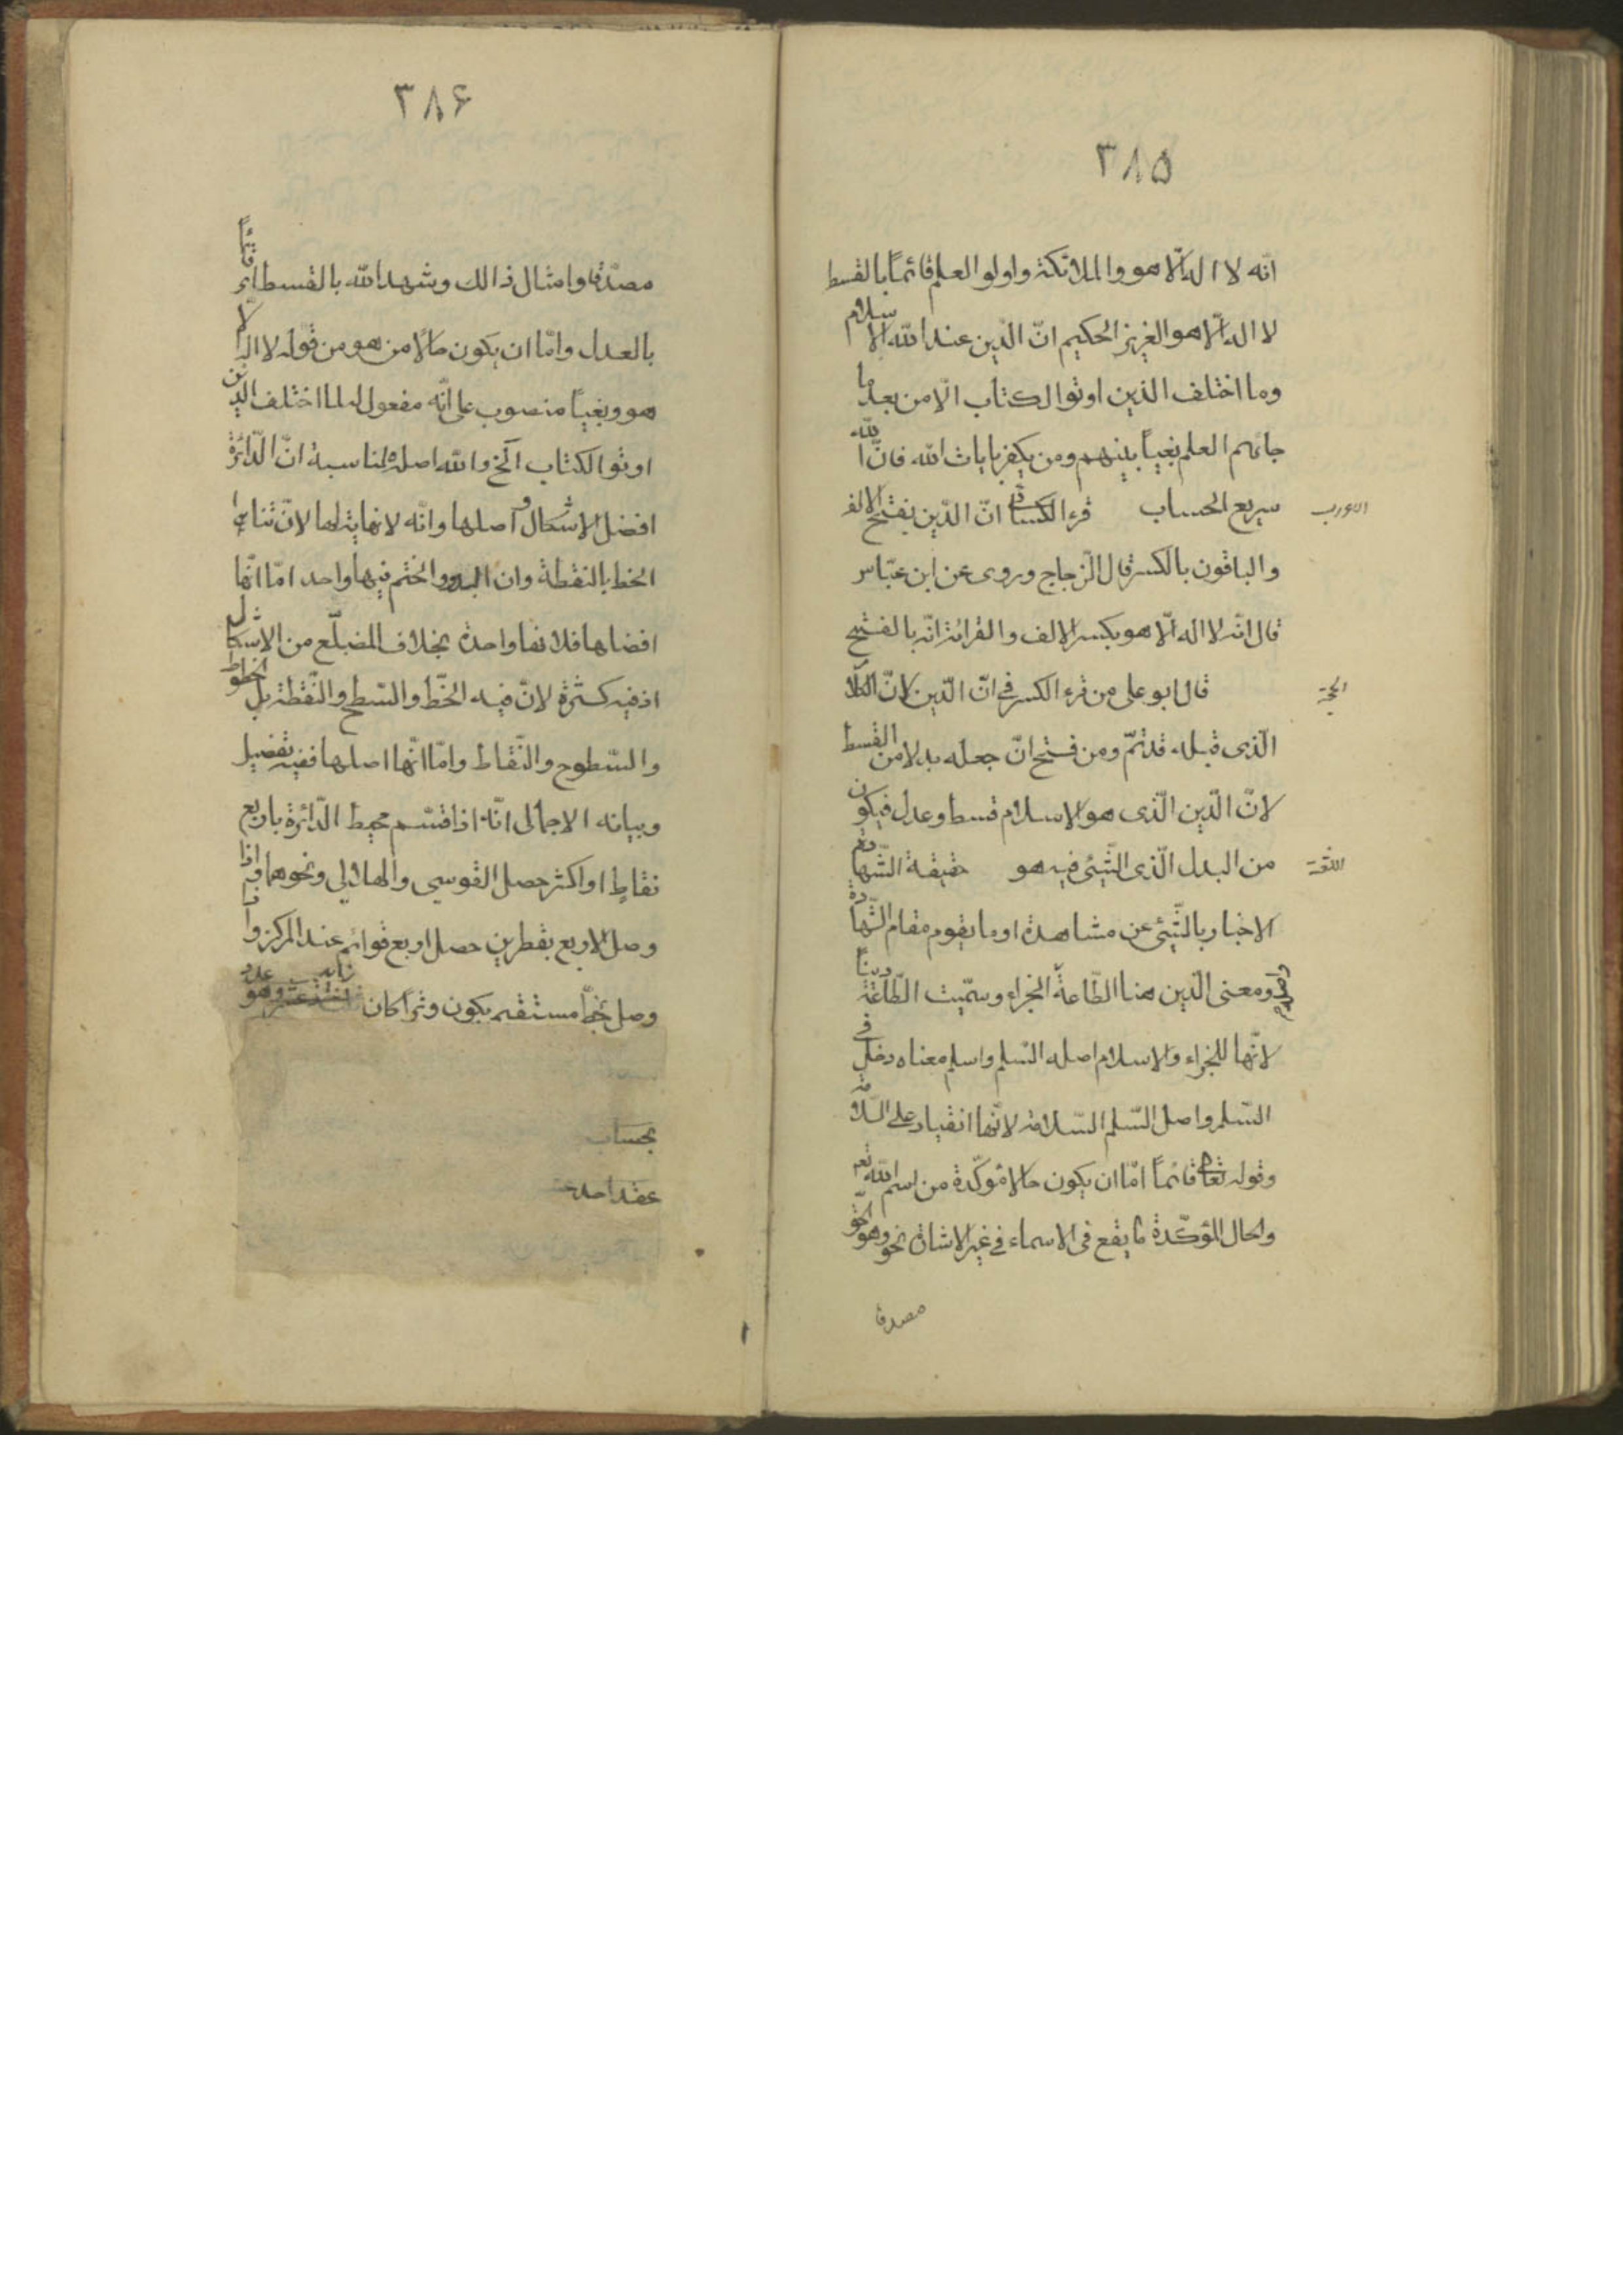 ٣٨۵
انّه لا اله الّا هو والملائكة واولو العلم قائماً بالقسط
لا اله الّا هو العزيز الحكيم انّ الدّين عند الله الاسلام
وما اختلف الذين اوتوا الكتاب الّا من بعد ما
جائهم العلم بغياً بينهم ومن يكفر بايات الله فانّ الله
سريع الحساب قرء الكسائى انّ الدّين بفتح الالف
والباقون بالكسر قال الزّجاج وروى عن ابن عبّاس
قال انّه لا اله الّا هو بكسر الالف والقرائة انّه بالفتح
الحجّة قال ابو على من قرء الكسر فى انّ الدّين لانّ الكلام
الّذى قبله قد تمّ ومن فتح انّ جعله بدلا من القسط
لانّ الدّين الّذى هو الاسلام قسط وعدل فيكون
من البدل الّذى الشّيئ فيه هو حقيقة الشّهادة
اللّغة
الاخبار بالشّيئ عن مشاهدة او ما يقوم مقام الشّهادة
ومعنى الدّين هنا الطّاعة الجزاء وسمّيت الطّاعة ديناً
لانّها للجزاء والاسلام اصله السّلم واسلم معناه دخل فى
السّلم واصل السّلم السّلامة لانّها انقياد على السّلامة
وقوله تعالى قائماً امّا ان يكون حالا مؤكّدة من اسم الله تعم
والحال المؤكّدة يقع فى الاسماء فى غير الاشارة نحو وهو الحقّ
مصدقا
٣٨۶
مصدّقا وامثال ذالك وشهد الله بالقسط اى قائماً
بالعدل وامّا ان يكون حالاً من هو من قوله لا اله الّا
هو وبغياً منصوب على انّه مفعول له لما اختلف الذين
اوتوا الكتاب الخ والله اصله لمناسبة انّ الدّائرة
افضل الاشكال واصلها وانّه لا نهاية لها لانّ تناهى
الخط بالنقطة وان البدو والختم فيها واحد امّا انّها
افضلها فلانّها واحدة بخلاف المضلّع من الاشكال
اذ فيه كثرة لانّ فيه الخّط والسّطح والنّقطة بل الخطوط
والسّطوح والنّقاط وامّا انّها اصلها ففيه تفصيل
وبيانه الاجمالى انّه اذا قسّم محيط الدّائرة باربع
نقاطٍ او اكثر حصل القوسى والهلالى ونحوهما واذا
وصل الاربع بقطرين حصل اربع قوائم عند المركز واذا
وصل بخطّ مستقيم يكون وتراً كان
بحساب
عقد احد